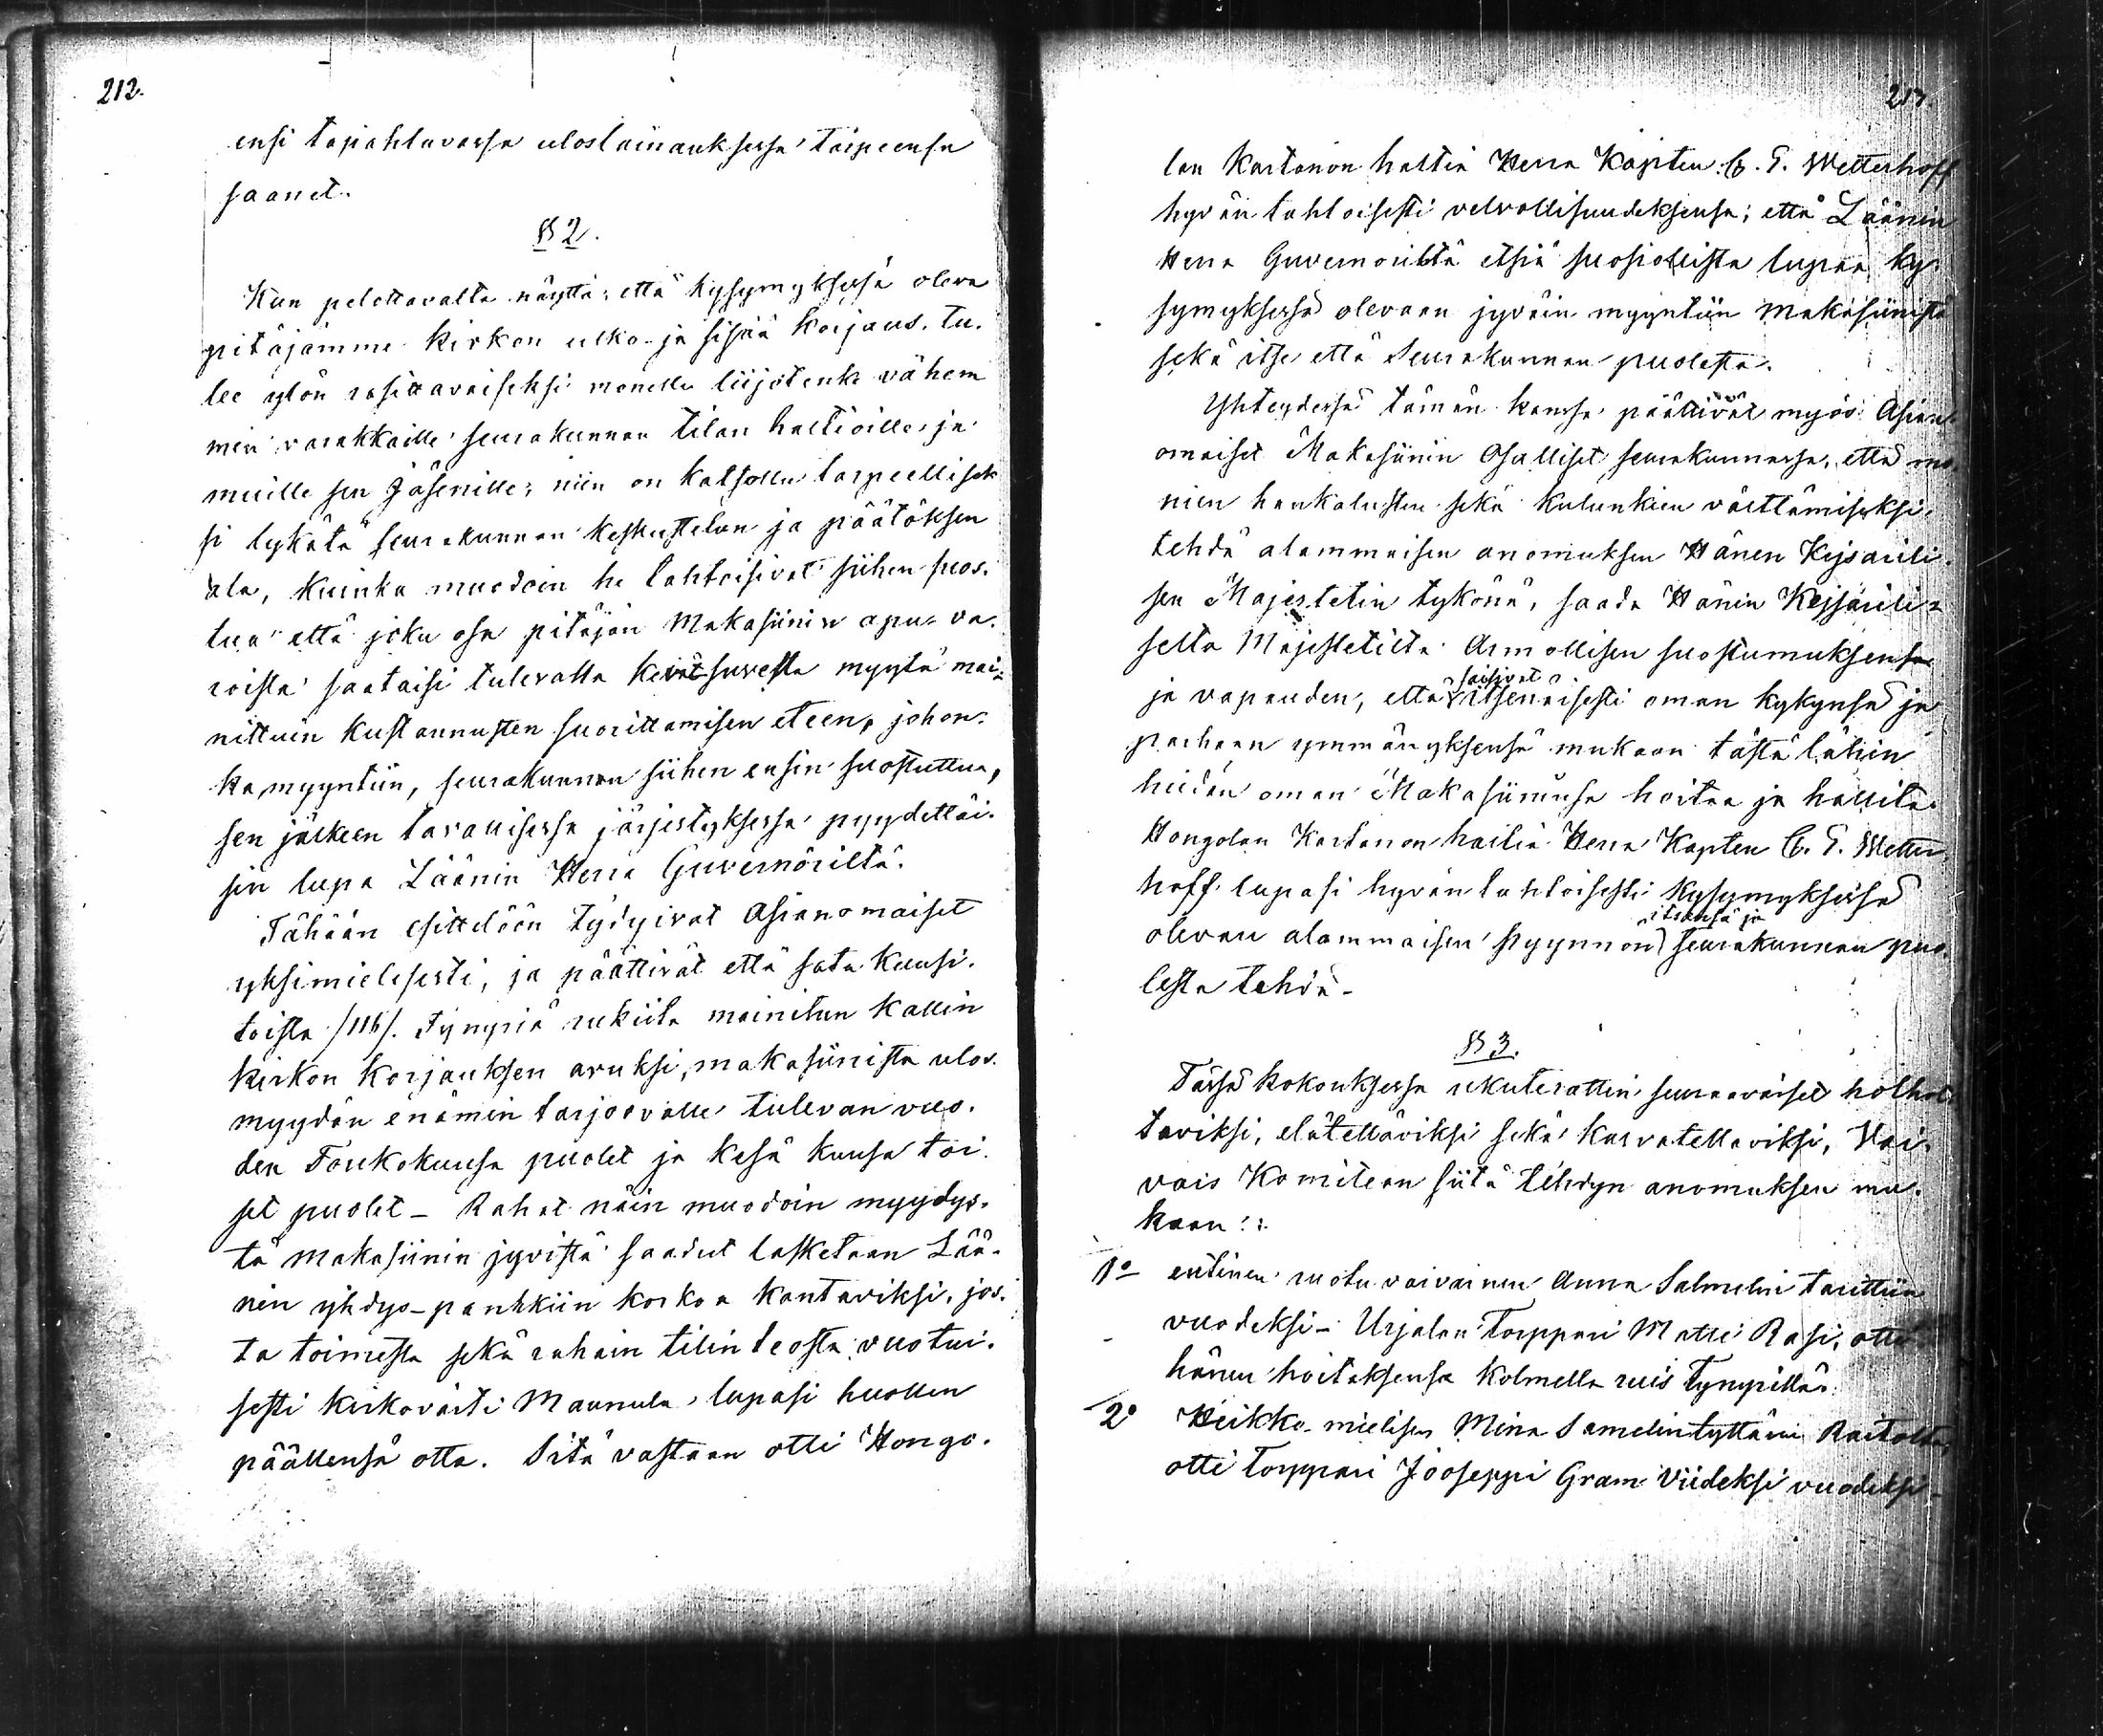 212.
ensi tapahtuvassa uloslainauksessa tarpeensa
saanet.
§ 2.
Kun pelottavalta näyttä, että kysymyksessä oleva
pitäjämme kirkon ulko- ja sisää korjaus, tu-
lee ylön rasittavaiseksi monelle liijotenki vähem
min varakkaille seurakunnan tilan haltioille, ja
muille sen Jäsenille; niin on katsottu tarpeellisek
si lykätä seurakunnan keskustelun ja päätöksen
ala, kuinka muodoin he tahtoisivat siihen suos-
tua että joku osa pitäjän Makasiinin apu-va-
roista saataisi tulevalta kevät suvesta myytä mai-
nittuin kustannusten suorittamisen eteen, johon-
ka myyntiin, seurakunnan siihen ensin suostuttua,
sen jälkeen tavallisessa järjestyksessä pyydettäi-
siin lupa Läänin Herra Guvernöriltä.
Tähään esittelöön tydyivät Asianomaiset
yksimielisesti, ja päättivät että sata kuusi-
toista /116/. Tynyriä rukiita mainitun kallin
kirkon korjauksen avuksi, makasiinista ulos-
myydän enämin tarjoovalle tulevan vuo-
den Toukokuusa puolet ja kesä kuusa toi-
set puolet – Rahat näin muodoin myydys-
tä makasiinin jyvistä saadut lasketaan Lää-
nin yhdys-pankkiin korkoa kantaviksi, jos-
ta toimesta sekä rahain tilin teosta vuotui-
sesti kirkovärti Mannula, lupasi huollen
päällensä otta. Sitä vastaan otti Hongo-
213.
lan kartanon haltia Herra Kapten C. T. Wetterhoff
hyvän tahtoisesti velvollisuudeksensa; että Läänin
Herra Guvernöriltä etsiä suosiollista lupaa ky-
symyksessä olevaan jyväin myyntiin Makasiinista
sekä itse että Seurakunnan puolesta.
Yhteydessä tämän kanssa päättivät myös Asian-
omaiset Makasiinin Osalliset seurakunnassa, että mo-
nien hankalusten sekä kulunkien välttämiseksi,
tehdä alammaisen anomuksen Hänen Kejsarili-
sen Majestetin tykönä, saada Hänin Kejsarili-
selta Majestetilta Armollisen suostumuksensa
ja vapauden, että saisivat itsenäisesti oman kykynsä ja
parhaan ymmäryksensä mukaan tästä lähin
heidän oman Makasiininsa hoitaa ja hallita.
Hongolan Kartanon haltia Herra Kapten C. T. Wetter-
hoff lupasi hyväntahtoisesti kysymyksessä
olevan alammaisen pyynnön itsensä ja seurakunnan puo-
lesta tehdä –
§ 3.
Tässä kokouksessa ukuterattin seuraavaiset holhot-
taviksi, elätettäviksi sekä kasvatettaviksi, Vai-
vais Komitean siitä tehdyn anomuksen mu-
kaan:
1o entinen ruotu vaivainen Anna Salmelin tarittiin
vuodeksi – Urjalan Torppari Matti Rasi, otti
hänen hoitaksensa kolmella ruis Tynyrillä.
2o Heikko-mielisen Mina Samelintyttären Raitolta
otti Torppari Jooseppi Gram Viideksi vuodeksi –